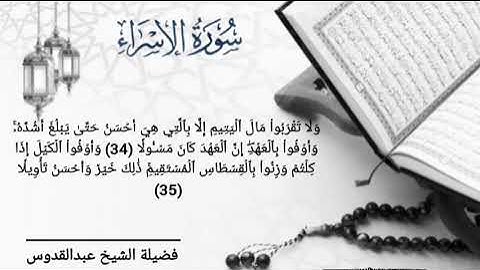 سُورَةُ الإِسْرَاء
وَلَا تَقْرَبُوا۟ مَالَ ٱلْيَتِيمِ إِلَّا بِٱلَّتِي هِيَ أَحْسَنُ حَتَّىٰ يَبْلُغَ أَشُدَّهُۥۚ
وَأَوْفُوا۟ بِٱلْعَهْدِۖ إِنَّ ٱلْعَهْدَ كَانَ مَسْـُٔولًا (34) وَأَوْفُوا۟ ٱلْكَيْلَ إِذَا
كِلْتُمْ وَزِنُوا۟ بِٱلْقِسْطَاسِ ٱلْمُسْتَقِيمِۚ ذَٰلِكَ خَيْرٌ وَأَحْسَنُ تَأْوِيلًا
(35)
فضيلة الشيخ عبدالقدوس